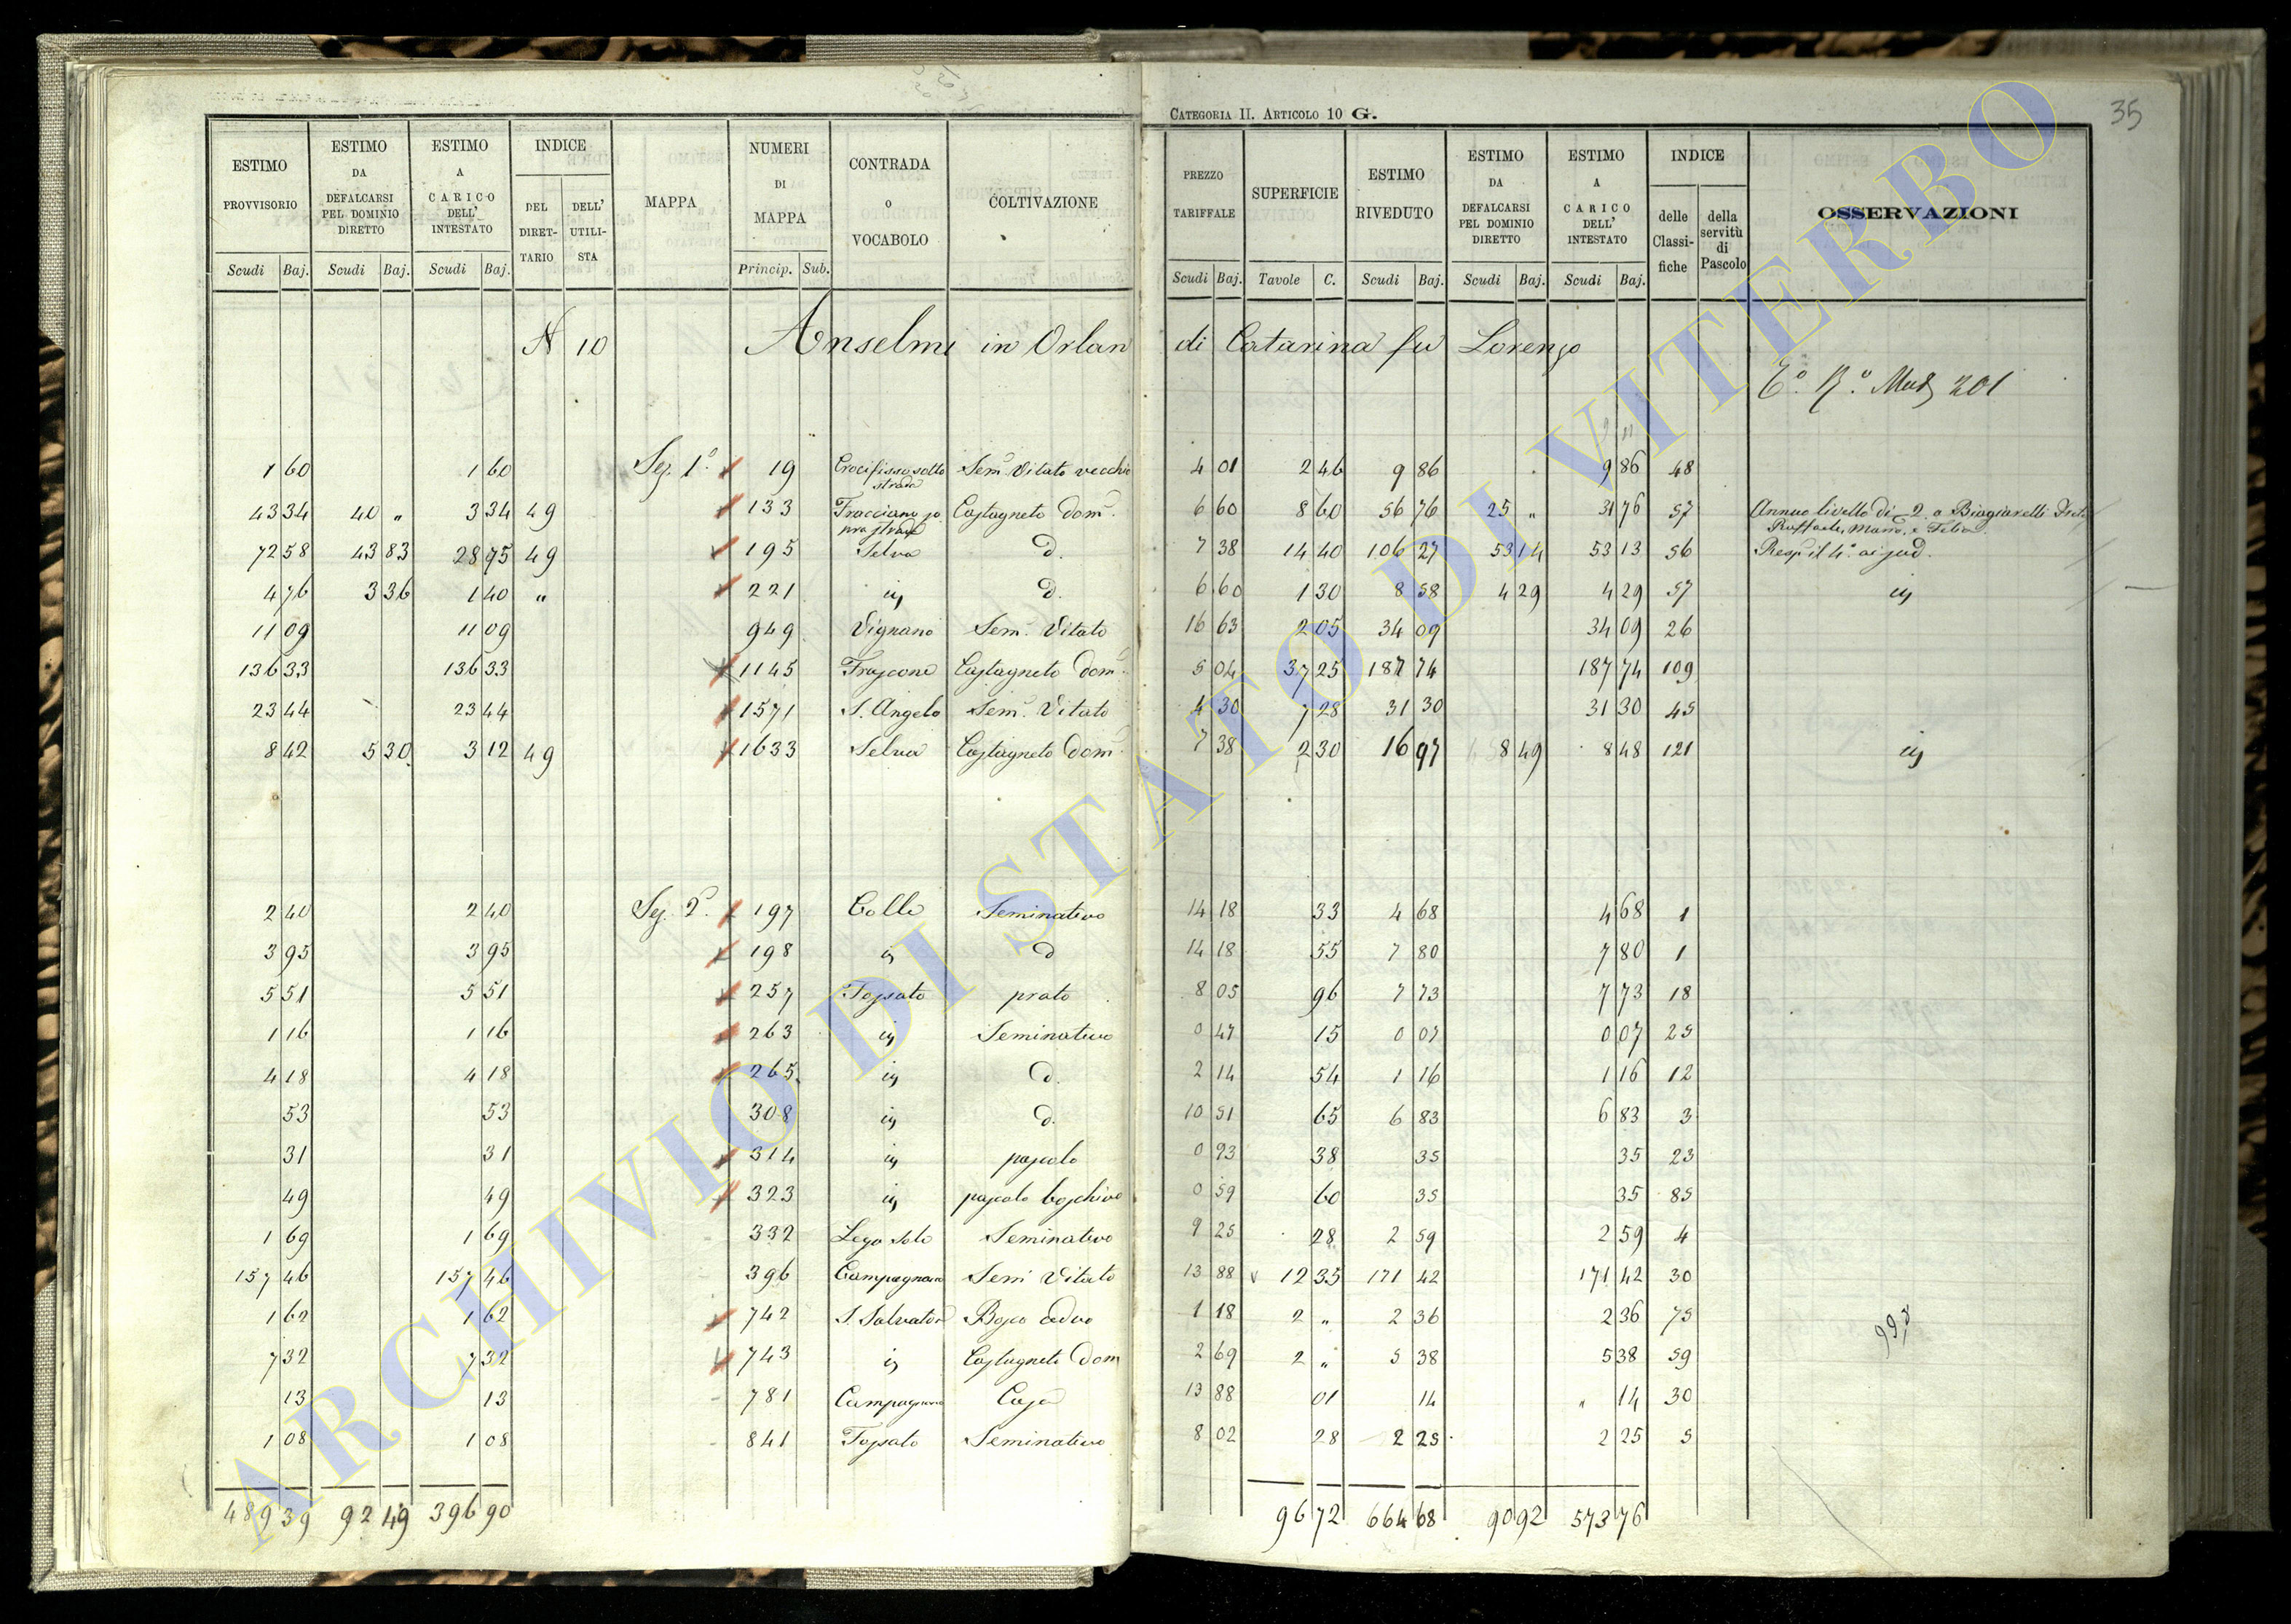 35
CATEGORIA II. ARTICOLO 10 G.
ESTIMO PROVVISORIO | ESTIMO DA DEFALCARSI PEL DOMINIO DIRETTO | ESTIMO A CARICO DELL' INTESTATO | INDICE DEL DIRETTARIO | DELL' UTILISTA | MAPPA | NUMERI DI MAPPA | CONTRADA O VOCABOLO | COLTIVAZIONE | PREZZO TARIFFALE | SUPERFICIE | ESTIMO RIVEDUTO | ESTIMO DA DEFALCARSI PEL DOMINIO DIRETTO | ESTIMO A CARICO DELL' INTESTATO | INDICE delle Classifiche | della servitù di Pascolo | OSSERVAZIONI
Scudi Baj. | Scudi Baj. | Scudi Baj. | Princip. Sub. | Scudi Baj. | Tavole C. | Scudi Baj. | Scudi Baj. | Scudi Baj.
N 10 Anselmi in Orlandi Catarina fu Lorenzo
201
1 60 | 1 60 | Sez. 1ª | 19 | Crocifisso sotto strada | Semo Vitato vecchio | 4 01 | 2 46 | 9 86 | 9 86 | 48
43 34 | 40 " | 3 34 | 49 | 133 | Fracciano sopra strada | Castagneto Dom. | 6 60 | 8 60 | 56 76 | 25 " | 31 76 | 57 | Annuo livello di 2 a Biagiarelli
72 58 | 43 83 | 28 75 | 49 | 195 | Selva | d. | 7 38 | 14 40 | 106 27 | 53 14 | 53 13 | 56
4 76 | 3 36 | 1 40 | " | 221 | id | d. | 6 60 | 1 30 | 8 58 | 4 29 | 4 29 | 57 | id
11 09 | 11 09 | 949 | Vignano | Sem. Vitato | 16 63 | 2 05 | 34 09 | 34 09 | 26
136 33 | 136 33 | 1145 | Frascone | Castagneto Dom. | 5 04 | 37 25 | 187 74 | 187 74 | 109
23 44 | 23 44 | 1571 | S. Angelo | Sem. Vitato | 4 30 | 7 28 | 31 30 | 31 30 | 45
8 42 | 5 30 | 3 12 | 49 | 1633 | Selva | Castagneto Dom. | 7 38 | 2 30 | 16 97 | 8 49 | 8 48 | 121 | id
2 40 | 2 40 | Sez. 2ª | 197 | Colle | Seminativo | 14 18 | 33 | 4 68 | 4 68 | 1
3 95 | 3 95 | 198 | id | d | 14 18 | 55 | 7 80 | 7 80 | 1
5 51 | 5 51 | 257 | Fossato | prato | 8 05 | 96 | 7 73 | 7 73 | 18
1 16 | 1 16 | 263 | id | Seminativo | 0 47 | 15 | 0 07 | 0 07 | 25
4 18 | 4 18 | 265 | id | d. | 2 14 | 54 | 1 16 | 1 16 | 12
53 | 53 | 308 | id | d. | 10 51 | 65 | 6 83 | 6 83 | 3
31 | 31 | 314 | id | pascolo | 0 93 | 38 | 35 | 35 | 23
49 | 49 | 323 | id | pascolo boschivo | 0 59 | 60 | 35 | 35 | 85
1 69 | 1 69 | 332 | Seminativo | 9 25 | 28 | 2 59 | 2 59 | 4
157 46 | 157 46 | 396 | Campagnano | Sem Vitato | 13 88 | 12 35 | 171 42 | 171 42 | 30
1 62 | 1 62 | 742 | S. Salvatore | Bosco ceduo | 1 18 | 2 " | 2 36 | 2 36 | 75
7 32 | 7 32 | 743 | id | Castagneto Dom | 2 69 | 2 " | 5 38 | 5 38 | 59
13 | 13 | 781 | Campagnano | Casa | 13 88 | 01 | 14 | " 14 | 30
1 08 | 1 08 | 841 | Fossato | Seminativo | 8 02 | 28 | 2 25 | 2 25 | 5
489 39 | 92 49 | 396 90 | 96 72 | 664 68 | 90 92 | 573 76
ARCHIVIO DI STATO DI VITERBO